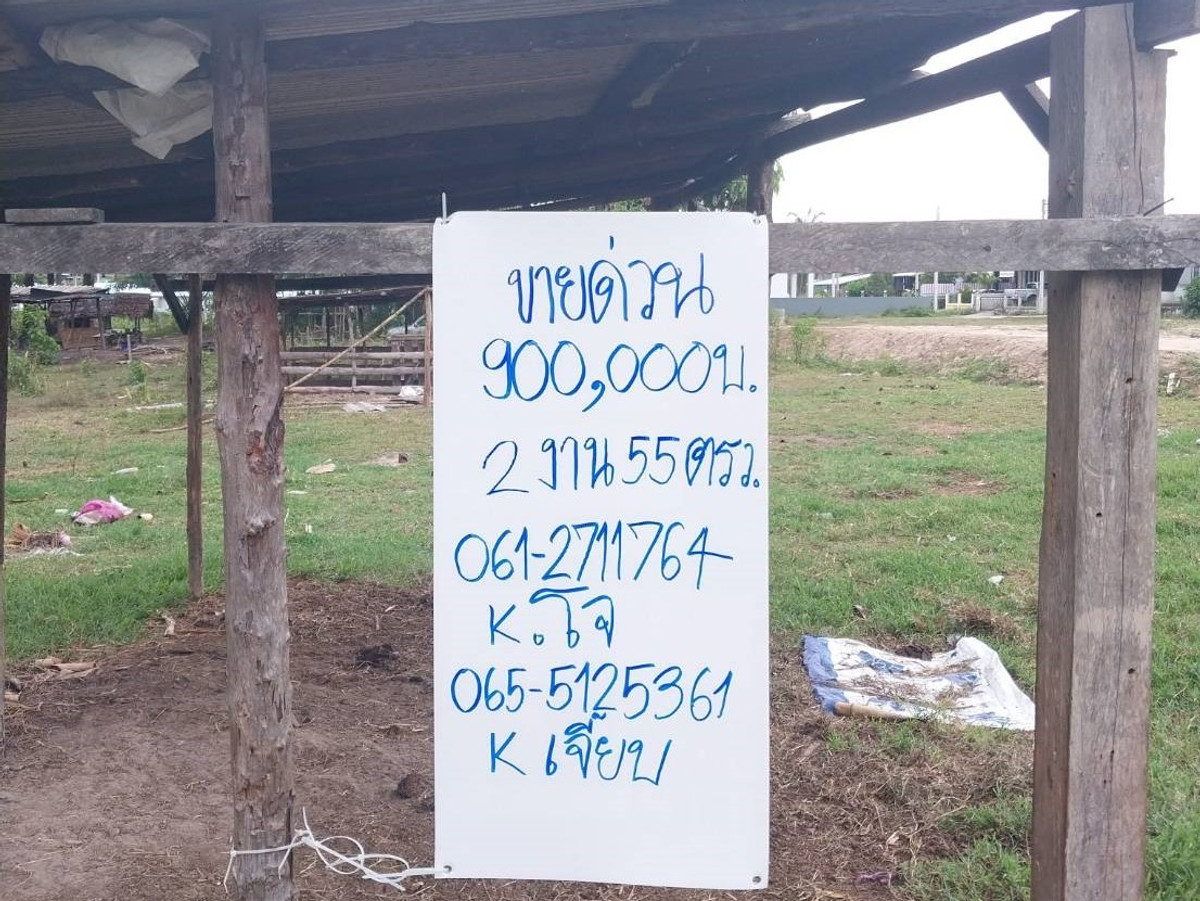 ขายด่วน
900,000บ.
2 งาน 55 ตรว.
061-2711764
K. โจ
065-5125361
K เจี๊ยบ